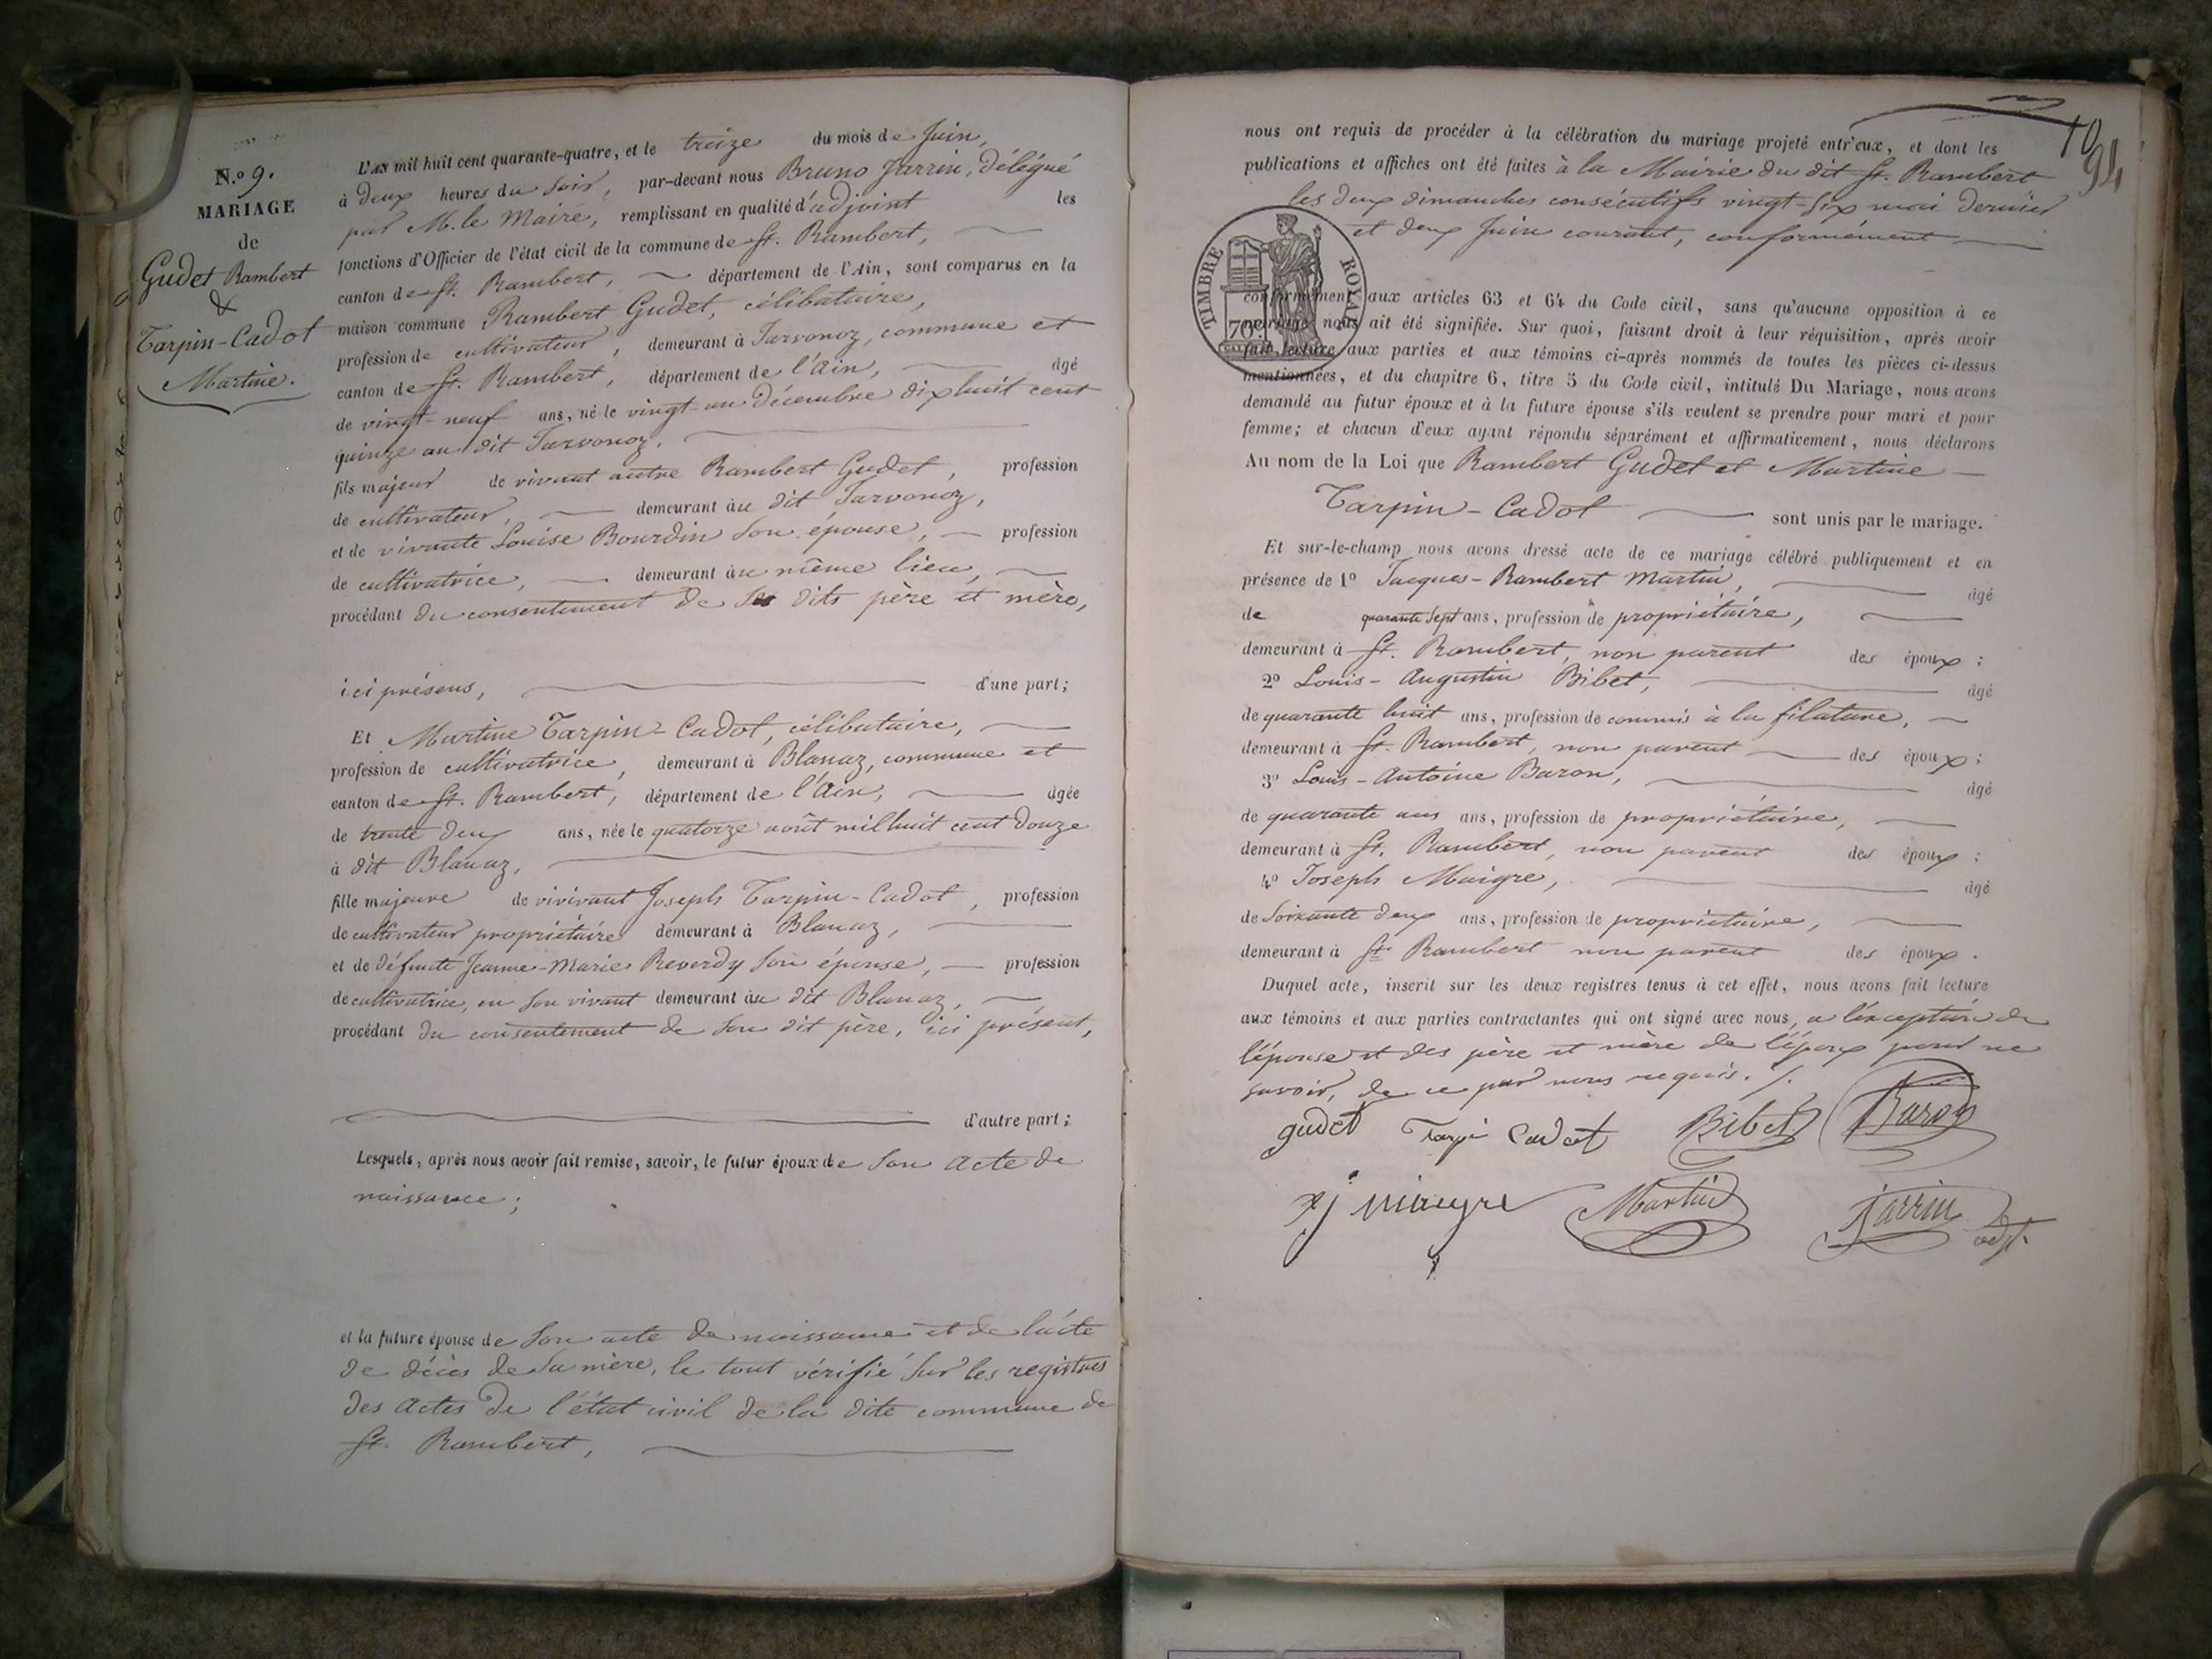 N.º 9.
MARIAGE
de
Gudet Rambert
&
Tarpin-Cadot
Martine.
L'AN mil huit cent quarante-quatre, et le treize du mois de Juin,
à deux heures du soir, par-devant nous Bruno Jarrin, délégué
par M. le Maire, remplissant en qualité d'adjoint les
fonctions d'Officier de l'état civil de la commune de St. Rambert,
canton de St. Rambert, département de l'Ain, sont comparus en la
maison commune Rambert Gudet, célibataire,
profession de cultivateur, demeurant à Jarvonoz, commune et
canton de St. Rambert, département de l'Ain, âgé
de vingt-neuf ans, né le vingt-un Décembre dix huit cent
quinze au dit Jarvonoz.
fils majeur de vivant autre Rambert Gudet, profession
de cultivateur, demeurant au dit Jarvonoz,
et de vivante Louise Bourdin son épouse, profession
de cultivatrice, demeurant au même lieu,
procédant du consentement de ses dits père et mère,
ici présens, d'une part;
Et Martine Tarpin-Cadot, célibataire,
profession de cultivatrice, demeurant à Blanaz, commune et
canton de St. Rambert, département de l'Ain, âgée
de trente deux ans, née le quatorze août mil huit cent douze
à dit Blanaz,
fille majeure de vivivant Joseph Tarpin-Cadot, profession
de cultivateur propriétaire demeurant à Blanaz,
et de défunte Jeanne-Marie Reverdy son épouse, profession
de cultivatrice, en son vivant demeurant au dit Blanaz,
procédant du consentement de son dit père, ici présent,
d'autre part;
Lesquels, après nous avoir fait remise, savoir, le futur époux de son acte de
naissance;
et la future épouse de son acte de naissance et de l'acte
de décès de sa mère, le tout vérifié sur les registres
des actes de l'état civil de la dite commune de
St. Rambert,
10
94
nous ont requis de procéder à la célébration du mariage projeté entr'eux, et dont les
publications et affiches ont été faites à la Mairie du dit St. Rambert
les deux dimanches consécutifs vingt-six mai dernier
et deux Juin courant, conformément
TIMBRE ROYAL
70
conformément aux articles 63 et 64 du Code civil, sans qu'aucune opposition à ce
mariage nous ait été signifiée. Sur quoi, faisant droit à leur réquisition, après avoir
fait lecture aux parties et aux témoins ci-après nommés de toutes les pièces ci-dessus
mentionnées, et du chapitre 6, titre 5 du Code civil, intitulé Du Mariage, nous avons
demandé au futur époux et à la future épouse s'ils veulent se prendre pour mari et pour
femme; et chacun d'eux ayant répondu séparément et affirmativement, nous déclarons
Au nom de la Loi que Rambert Gudet et Martine
Tarpin-Cadot sont unis par le mariage.
Et sur-le-champ nous avons dressé acte de ce mariage célébré publiquement et en
présence de 1º Jacques-Rambert Martin, âgé
de quarante sept ans, profession de propriétaire,
demeurant à St. Rambert, non parent des époux;
2º Louis-Augustin Bibet, âgé
de quarante huit ans, profession de commis à la filature,
demeurant à St. Rambert, non parent des époux;
3º Louis-Antoine Baron, âgé
de quarante ans ans, profession de propriétaire,
demeurant à St. Rambert, non parent des époux;
4º Joseph Maigre, âgé
de soixante deux ans, profession de propriétaire,
demeurant à St Rambert non parent des époux.
Duquel acte, inscrit sur les deux registres tenus à cet effet, nous avons fait lecture
aux témoins et aux parties contractantes qui ont signé avec nous, a l'exception de
l'épouse et des père et mère de l'époux pour ne
savoir, de ce par nous requis. /.
gudet Tarpi Cadot Bibet Baron
j maigre Martin Jarrin
adjt.